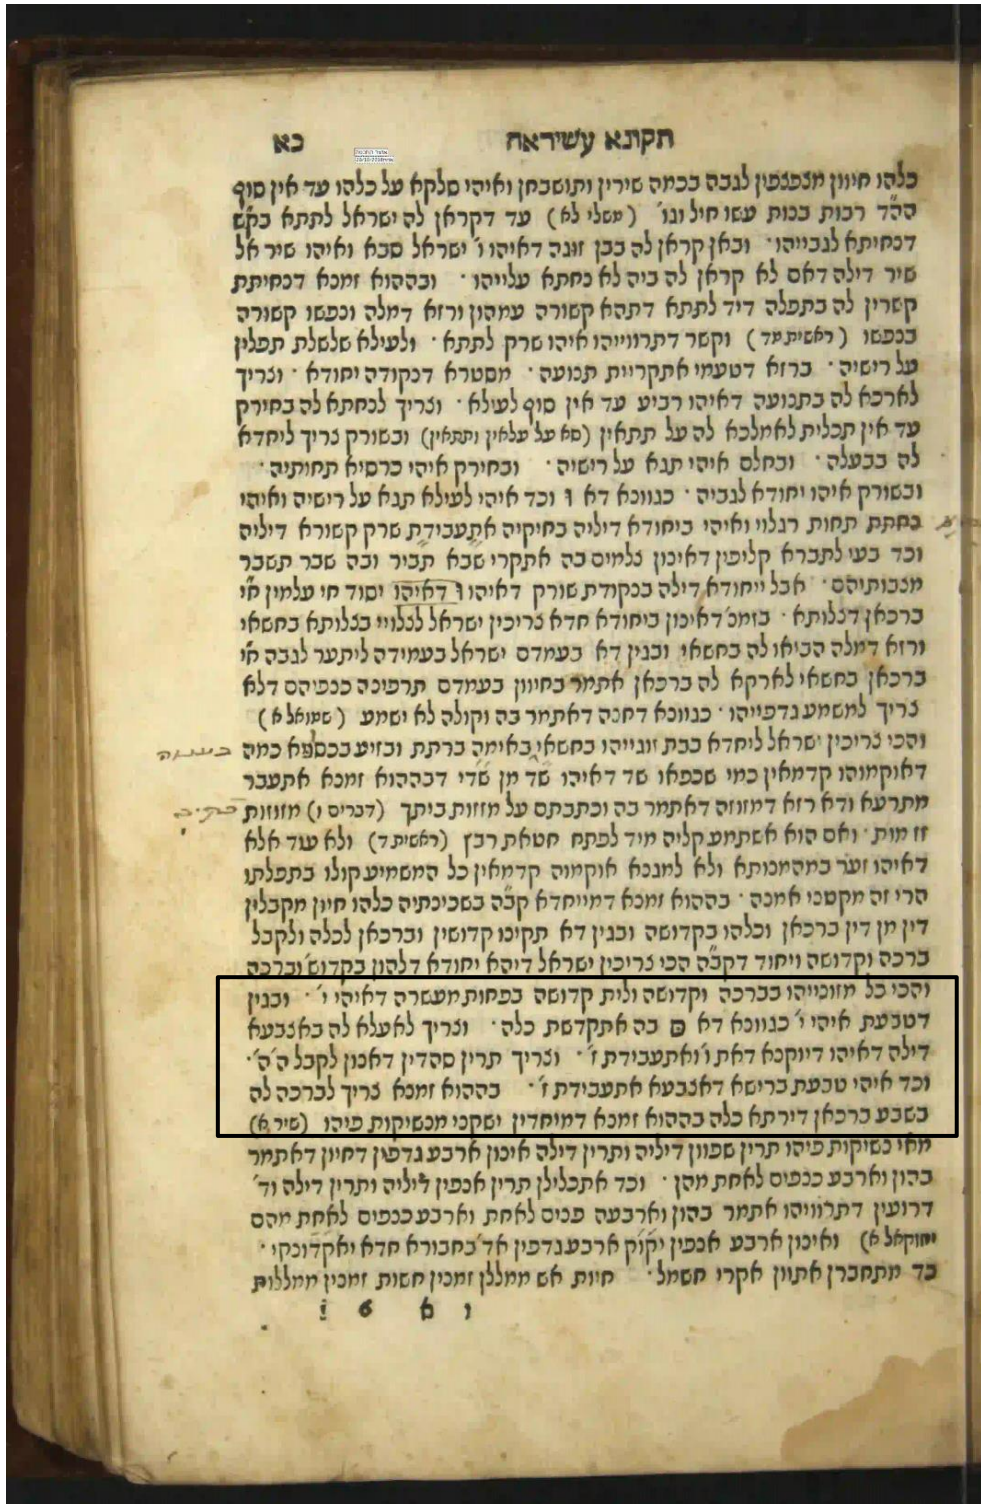 תקונא עשיראה כא
כלהו חיוון מצפצפין לגבה בכמה שירין ותושבחן ואיהי סלקא על כלהו עד אין סוף
הה״ד רבות בנות עשו חיל וגו׳ (משלי לא) עד דקראן לה ישראל לתתא בק״ש
דנחיתא לגבייהו· ובאן קראן לה בבן זוגה דאיהו ו׳ ישראל סבא ואיהו שיר אל
שיר דילה דאם לא קראן לה ביה לא נחתא עלייהו· ובההוא זמנא דנחיתת
קשרין לה בתפלה דיד לתתא דתהא קשורה עמהון ורזא דמלה ונפשו קשורה
בנפשו (ראשית מד) וקשר דתרווייהו איהו שרק לתתא· ולעילא שלשלת תפלין
על רישיה· ברזא דטעמי אתקריית תנועה· מסטרא דנקודה יחודא· וצריך
לארכא לה בתנועה דאיהו רביע עד אין סוף לעילא· וצריך לנחתא לה בחירק
עד אין תכלית לאמלכא לה על תתאין (סא על עלאין ותתאין) ובשורק צריך ליחדא
לה בבעלה· ובחלם איהי תגא על רישיה· ובחירק איהי כרסיא תחותיה·
ובשורק איהו יחודא לגביה· כגוונא דא וּ וכד איהי לעילא תגא על רישיה ואיהי
נחתת תחות רגלוי ואיהי ביחודא דיליה בחיקיה אתעבידת שרק קשורא דיליה
וכד בעי לתברא קליפין דאינון צלמים בה אתקרי שבא תביר ובה שבר תשבר
מצבותיהם· אבל ייחודא דילה בנקודת שורק דאיהו וּ דאיהו יסוד חי עלמין ח״י
ברכאן דצלותא· בזמנ׳ דאינון ביחודא חדא צריכין ישראל לצלויי בצלותא בחשאי
ורזא דמלה הביאו לה בחשאי ובגין דא בעמדם ישראל בעמידה ליתער לגבה ח״י
ברכאן בחשאי לארקא לה ברכאן אתמר בחיוון בעמדם תרפינה כנפיהם דלא
צריך למשמע גדפייהו· כגוונא דחנה דאתמר בה וקולה לא ישמע (שמואל א)
והכי צריכין ישראל ליחדא בבת זוגייהו בחשאי באימה ברתת ובזיע בכסופא כמה
דאוקמוהו קדמאין כמי שכפאו שד דאיהו שד מן שדי דבההוא זמנא אתעבר
מתרעא ודא רזא דמזוזה דאתמר בה וכתבתם על מזזות ביתך (דברים ו) מזוזות
זז מות· ואם הוא אשתמע קליה מיד לפתח חטאת רבץ (ראשית ד) ולא עוד אלא
דאיהו זער במהמנותא ולא למגנא אוקמוה קדמאין כל המשמיע קולו בתפלתו
הרי זה מקטני אמנה· בההוא זמנא דמייחדא קב״ה בשכינתיה כלהו חיון מקבלין
דין מן דין ברכאן וכלהו בקדושה ובגין דא תקינו קדושין וברכאן לכלה ולקבל
ברכה וקדושה ויחוד דקב״ה הכי צריכין ישראל דיהא יחודא דלהון בקדוש׳ וברכה
והכי כל מזונייהו בברכה וקדושה ולית קדושה בפחות מעשרה דאיהי י׳· ובגין
דטבעת איהי י׳ כגוונא דא ם בה אתקדשת כלה· וצריך לאעלא לה באצבעא
דילה דאיהו דיוקנא דאת ו׳ ואתעבידת ז׳· וצריך תרין סהדין דאנון לקבל ה׳ה׳·
וכד איהי טבעת ברישא דאצבעא אתעבידת ז׳· בההוא זמנא צריך לברכה לה
בשבע ברכאן דירתא כלה בההוא זמנא דמיחדין ישקני מנשיקות פיהו (שיר א)
מאי נשיקות פיהו תרין שפוון דיליה ותרין דילה אינון ארבע גדפין דחיון דאתמר
בהון וארבע כנפים לאחת מהן· וכד אתכלילן תרין אנפין דיליה ותרין דילה וד׳
דרועין דתרוויהו אתמר בהון וארבעה פנים לאחת וארבע כנפים לאחת מהם
יחזקאל א) ואינון ארבע אנפין יקוק ארבע גדפין אד׳ בחבורא חדא יאקדונקי·
כד מתחברן אתוון אקרו חשמל· חיות אש ממללן זמנין חשות זמנין ממללות